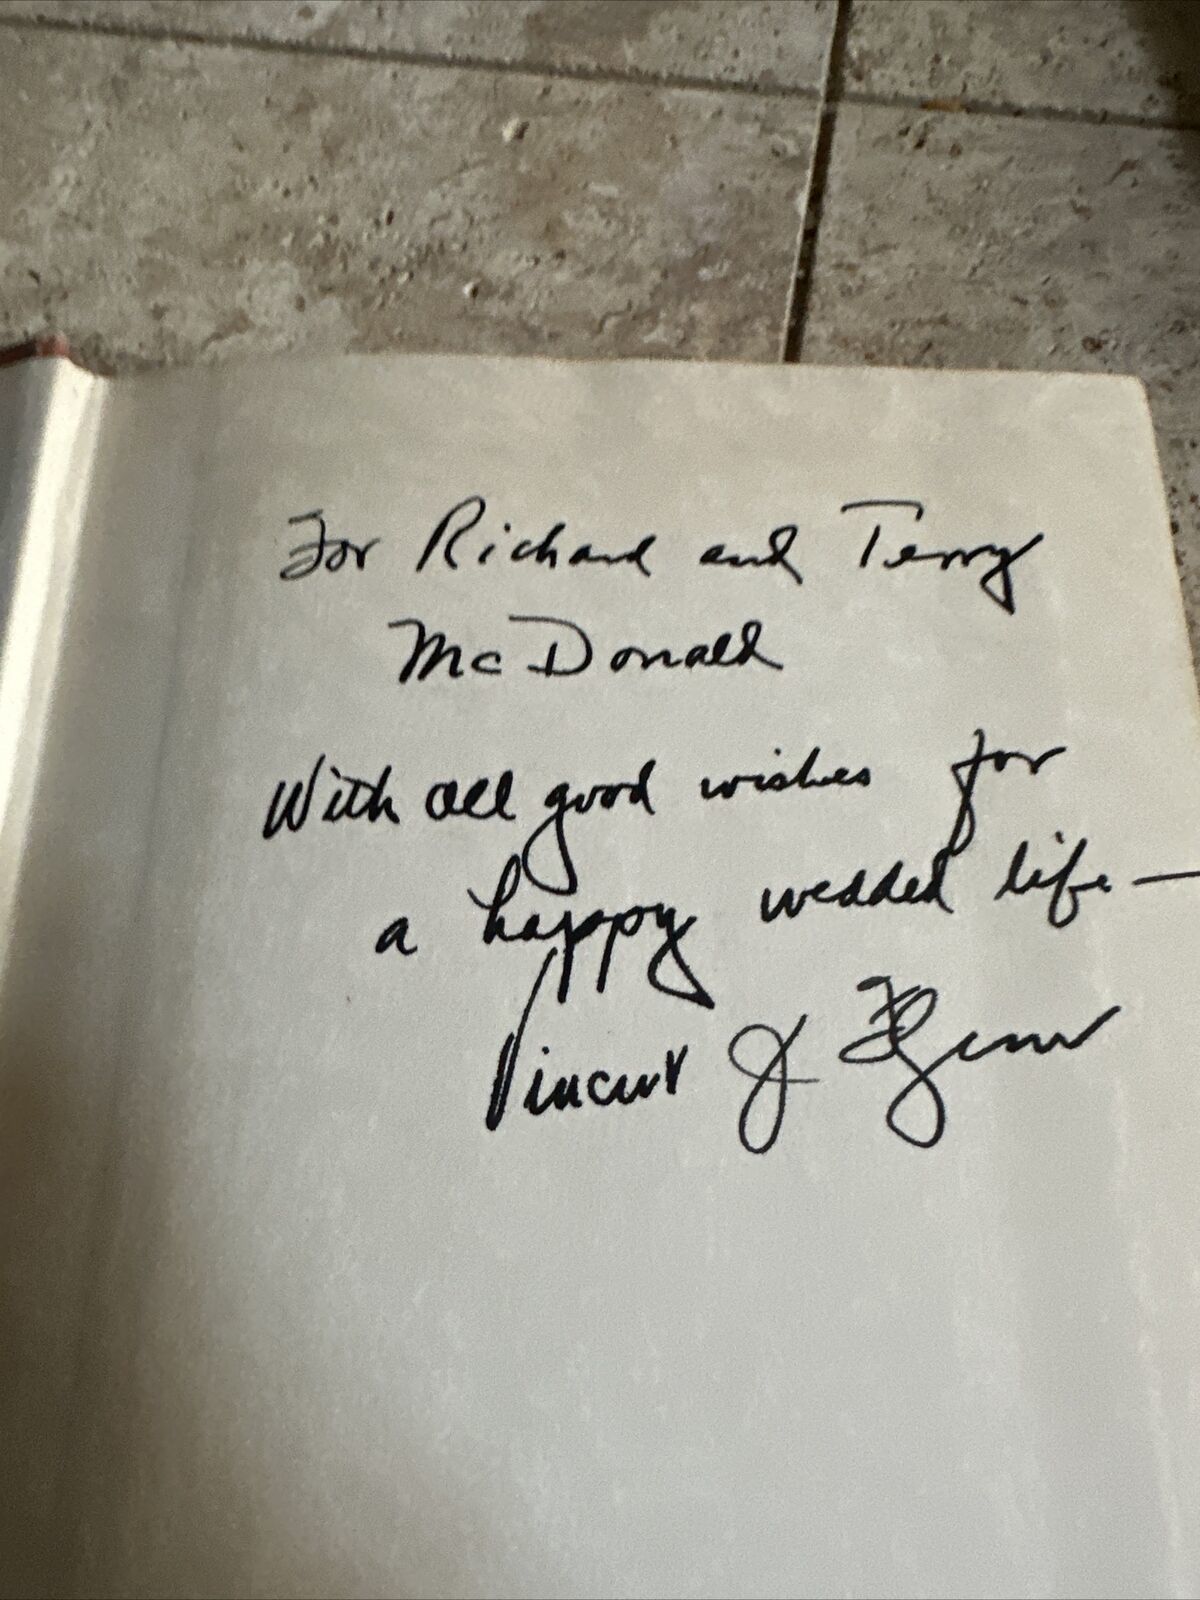 For Richard and Terry
McDonald
With all good wishes for
a happy wedded life —
Vincent J.